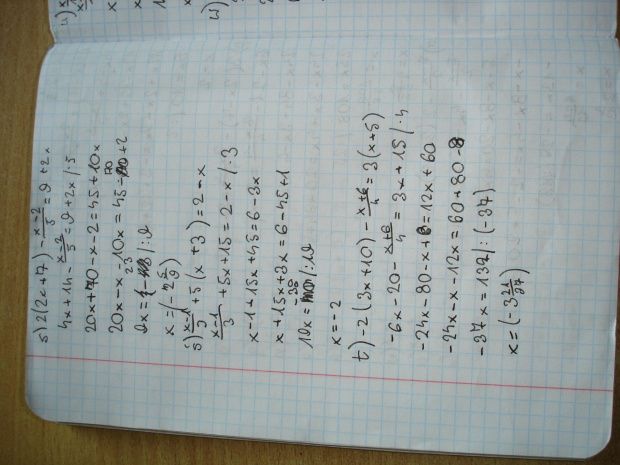 s) 2(2x+7) - \frac{x-2}{5} = 9+2x
4x+14 - \frac{x-2}{5} = 9+2x /·5
20x+70-x-2=45+10x
20x-x-10x=45-70+2
9x= /:9
x=(-2\frac{5}{9})
ś) \frac{x-1}{3}+5(x+3)=2-x
\frac{x-1}{3}+5x+15=2-x /·3
x-1+15x+45=6-3x
x+15x+3x=6-45+1
19x= /:19
x=-2
t) -2(3x+10) - \frac{x+6}{4} = 3(x+5)
-6x-20 - \frac{x+6}{4} = 3x+15 /·4
-24x-80-x+6=12x+60
-24x-x-12x=60+80-8
-37x=132/:(-37)
x=(-3\frac{21}{37})